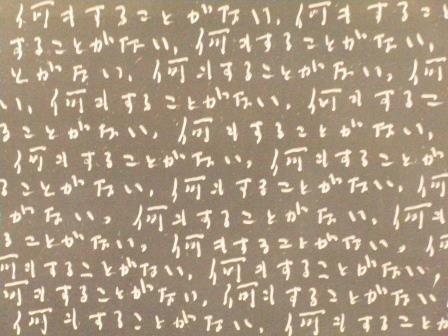 何もすることがない、何もするこ
することがない、何もすることがない、
とがない、何もすることがない、何
い、何もすることがない、何もする
ることがない、何もすることがない、
何もすることがない、何もすることが
ることがない、何もすることがない、何
がない、何もすることがない、何も
ることがない、何もすることがない、何
何もすることがない、何もすることがない、
何もすることがない、何もすることがない、
何もすることがない、何もすること